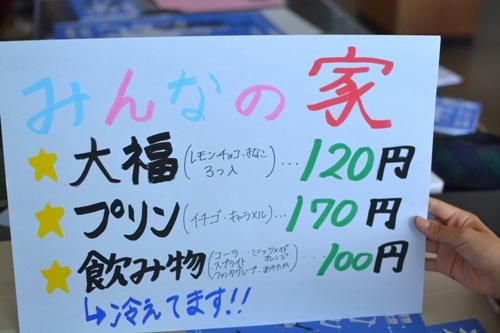 みんなの家
大福(レモン・チョコ・きなこ 3つ入)…120円
プリン(イチゴ・キャラメル)…170円
飲み物(・コーラ ・ミニッツメイド オレンジ ・スプライト ・ファンタグレープ ・あやたか)…100円
↳冷えてます!!